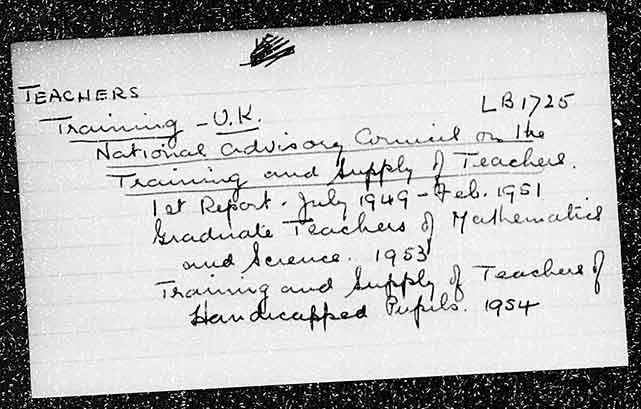 TEACHERS
Training - U.K. LB1725
National Advisory Council on the
Training and Supply of Teachers.
1st Report. July 1949 - Feb. 1951
Graduate Teachers of Mathematics
and Science. 1953
Training and Supply of Teachers of
Handicapped Pupils. 1954